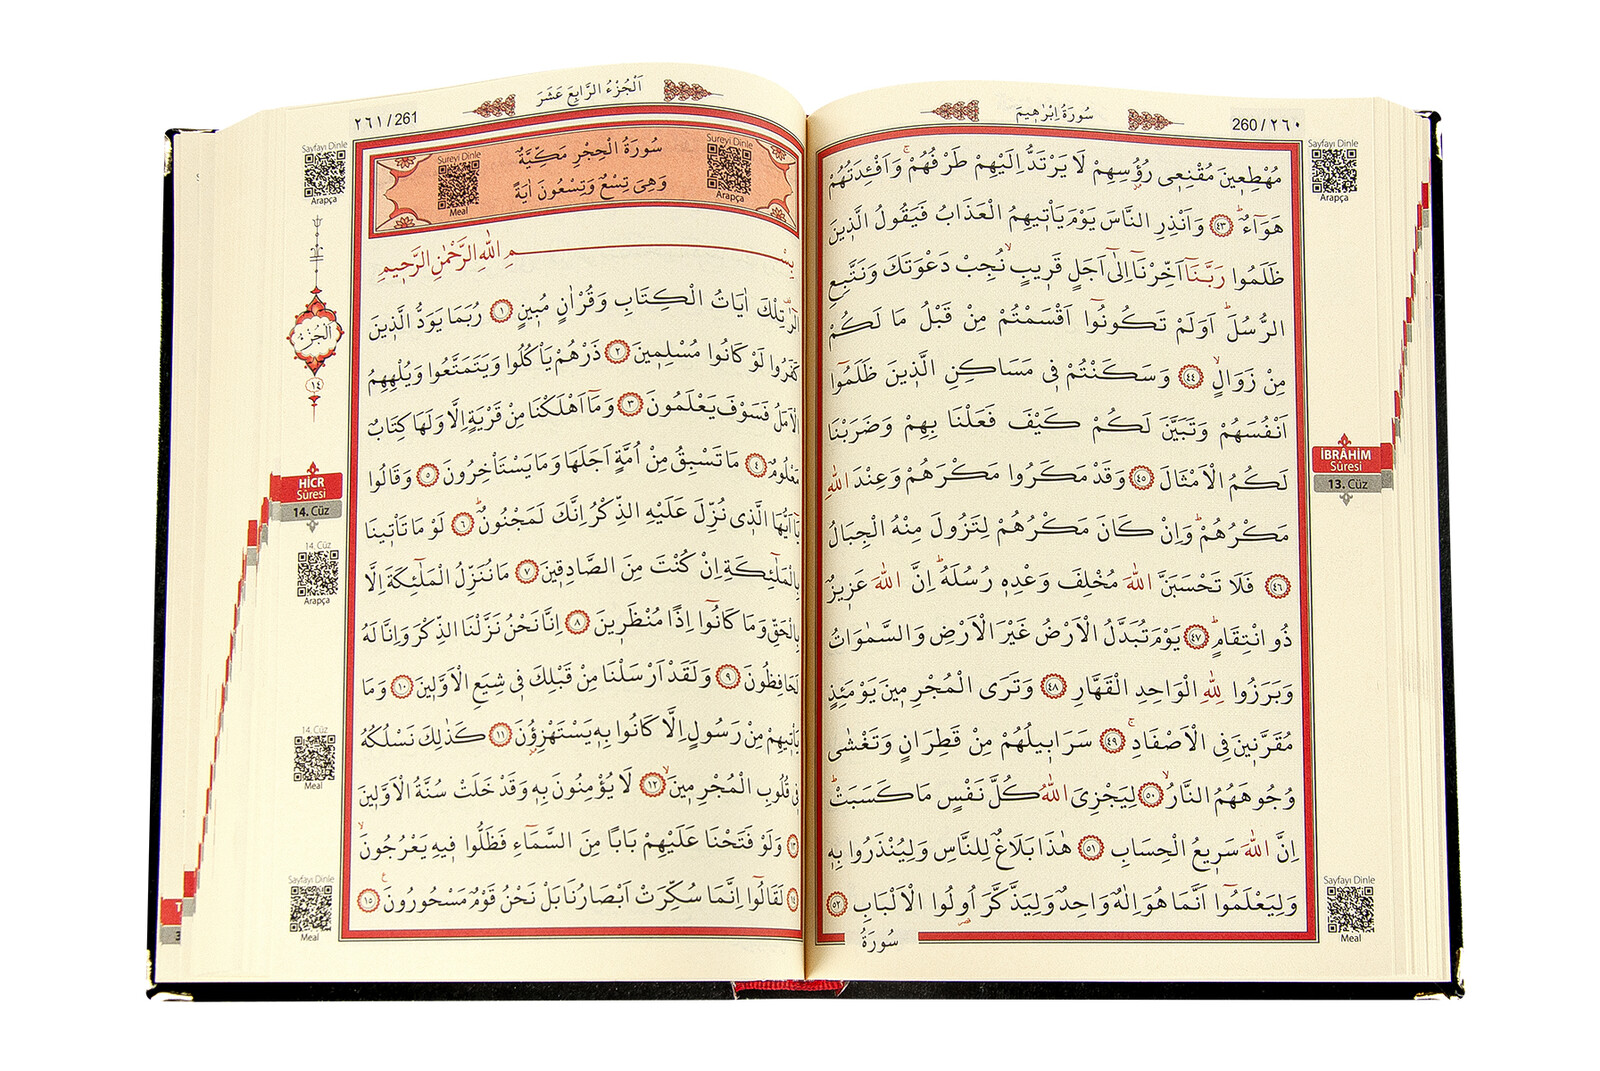 سُورَةُ اِبْرٰه۪يمَ
260/٢٦٠
مُهْطِع۪ينَ مُقْنِع۪ي رُؤُ۫سِهِمْ لَا يَرْتَدُّ اِلَيْهِمْ طَرْفُهُمْۚ وَاَفْـِٔدَتُهُمْ
هَوَٓاءٌۜ ﴿٤٣﴾ وَاَنْذِرِ النَّاسَ يَوْمَ يَأْت۪يهِمُ الْعَذَابُ فَيَقُولُ الَّذ۪ينَ
ظَلَمُوا رَبَّنَٓا اَخِّرْنَٓا اِلٰٓى اَجَلٍ قَر۪يبٍۙ نُجِبْ دَعْوَتَكَ وَنَتَّبِعِ
الرُّسُلَۜ اَوَلَمْ تَكُونُٓوا اَقْسَمْتُمْ مِنْ قَبْلُ مَا لَكُمْ
مِنْ زَوَالٍۙ ﴿٤٤﴾ وَسَكَنْتُمْ ف۪ي مَسَاكِنِ الَّذ۪ينَ ظَلَمُٓوا
اَنْفُسَهُمْ وَتَبَيَّنَ لَكُمْ كَيْفَ فَعَلْنَا بِهِمْ وَضَرَبْنَا
لَكُمُ الْاَمْثَالَ ﴿٤٥﴾ وَقَدْ مَكَرُوا مَكْرَهُمْ وَعِنْدَ اللّٰهِ
مَكْرُهُمْۜ وَاِنْ كَانَ مَكْرُهُمْ لِتَزُولَ مِنْهُ الْجِبَالُ
﴿٤٦﴾ فَلَا تَحْسَبَنَّ اللّٰهَ مُخْلِفَ وَعْدِه۪ رُسُلَهُۜ اِنَّ اللّٰهَ عَز۪يزٌ
ذُو انْتِقَامٍۜ ﴿٤٧﴾ يَوْمَ تُبَدَّلُ الْاَرْضُ غَيْرَ الْاَرْضِ وَالسَّمٰوَاتُ
وَبَرَزُوا لِلّٰهِ الْوَاحِدِ الْقَهَّارِ ﴿٤٨﴾ وَتَرَى الْمُجْرِم۪ينَ يَوْمَئِذٍ
مُقَرَّن۪ينَ فِي الْاَصْفَادِۚ ﴿٤٩﴾ سَرَاب۪يلُهُمْ مِنْ قَطِرَانٍ وَتَغْشٰى
وُجُوهَهُمُ النَّارُۙ ﴿٥٠﴾ لِيَجْزِيَ اللّٰهُ كُلَّ نَفْسٍ مَا كَسَبَتْۜ
اِنَّ اللّٰهَ سَر۪يعُ الْحِسَابِ ﴿٥١﴾ هٰذَا بَلَاغٌ لِلنَّاسِ وَلِيُنْذَرُوا بِه۪
وَلِيَعْلَمُٓوا اَنَّمَا هُوَ اِلٰهٌ وَاحِدٌ وَلِيَذَّكَّرَ اُو۬لُوا الْاَلْبَابِ ﴿٥٢﴾
سُورَةُ
Sayfayı Dinle
Arapça
İBRÂHİM
Sûresi
13. Cüz
Sayfayı Dinle
Meal
اَلْجُزْءُ الرَّابِعَ عَشَرَ
٢٦١/261
سُورَةُ الْحِجْرِ مَكِّيَّةٌ
وَهِيَ تِسْعٌ وَتِسْعُونَ اٰيَةً
Sureyi Dinle
Arapça
Sureyi Dinle
Meal
بِسْمِ اللّٰهِ الرَّحْمٰنِ الرَّح۪يمِ
الٓرٰ۠ تِلْكَ اٰيَاتُ الْكِتَابِ وَقُرْاٰنٍ مُب۪ينٍ ﴿١﴾ رُبَمَا يَوَدُّ الَّذ۪ينَ
كَفَرُوا لَوْ كَانُوا مُسْلِم۪ينَ ﴿٢﴾ ذَرْهُمْ يَأْكُلُوا وَيَتَمَتَّعُوا وَيُلْهِهِمُ
الْاَمَلُ فَسَوْفَ يَعْلَمُونَ ﴿٣﴾ وَمَٓا اَهْلَكْنَا مِنْ قَرْيَةٍ اِلَّا وَلَهَا كِتَابٌ
مَعْلُومٌ ﴿٤﴾ مَا تَسْبِقُ مِنْ اُمَّةٍ اَجَلَهَا وَمَا يَسْتَأْخِرُونَ ﴿٥﴾ وَقَالُوا
يَٓا اَيُّهَا الَّذ۪ي نُزِّلَ عَلَيْهِ الذِّكْرُ اِنَّكَ لَمَجْنُونٌۜ ﴿٦﴾ لَوْ مَا تَأْت۪ينَا
بِالْمَلٰٓئِكَةِ اِنْ كُنْتَ مِنَ الصَّادِق۪ينَ ﴿٧﴾ مَا نُنَزِّلُ الْمَلٰٓئِكَةَ اِلَّا
بِالْحَقِّ وَمَا كَانُٓوا اِذًا مُنْظَر۪ينَ ﴿٨﴾ اِنَّا نَحْنُ نَزَّلْنَا الذِّكْرَ وَاِنَّا لَهُ
لَحَافِظُونَ ﴿٩﴾ وَلَقَدْ اَرْسَلْنَا مِنْ قَبْلِكَ ف۪ي شِيَعِ الْاَوَّل۪ينَ ﴿١٠﴾ وَمَا
يَأْت۪يهِمْ مِنْ رَسُولٍ اِلَّا كَانُوا بِه۪ يَسْتَهْزِؤُ۫نَ ﴿١١﴾ كَذٰلِكَ نَسْلُكُهُ
ف۪ي قُلُوبِ الْمُجْرِم۪ينَۙ ﴿١٢﴾ لَا يُؤْمِنُونَ بِه۪ وَقَدْ خَلَتْ سُنَّةُ الْاَوَّل۪ينَ
﴿١٣﴾ وَلَوْ فَتَحْنَا عَلَيْهِمْ بَابًا مِنَ السَّمَٓاءِ فَظَلُّوا ف۪يهِ يَعْرُجُونَۙ
﴿١٤﴾ لَقَالُٓوا اِنَّمَا سُكِّرَتْ اَبْصَارُنَا بَلْ نَحْنُ قَوْمٌ مَسْحُورُونَ۟ ﴿١٥﴾
Sayfayı Dinle
Arapça
اَلْجُزْءُ
١٤
HİCR
Sûresi
14. Cüz
14. Cüz
Arapça
14. Cüz
Meal
Sayfayı Dinle
Meal